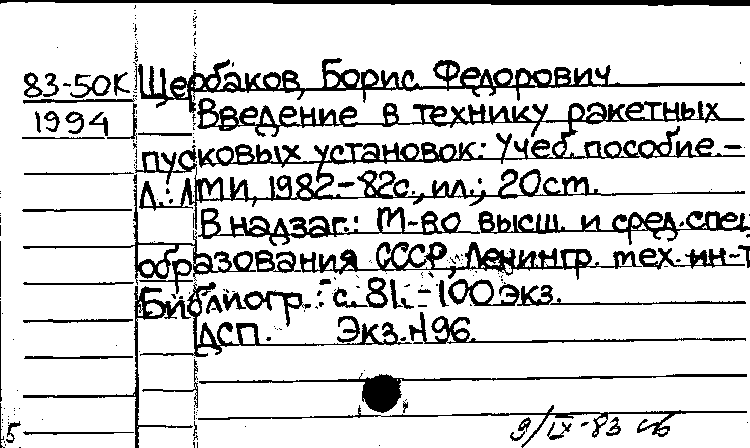 83-50К Щербаков, Борис Федорович
1994 Введение в технику ракетных
пусковых установок: Учеб. пособие.-
Л.: ЛМИ, 1982.- 82с., ил.; 20ст.
В надзаг.: М-во высш. и сред. спец.
образования СССР, Ленингр. мех. ин-т
Библиогр.: с. 81.- 100 экз.
ДСП. Экз.N96.
5 9/IX-83